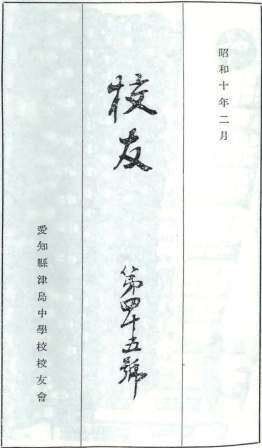 昭和十年二月
校友
第四十五號
愛知縣津島中學校校友會